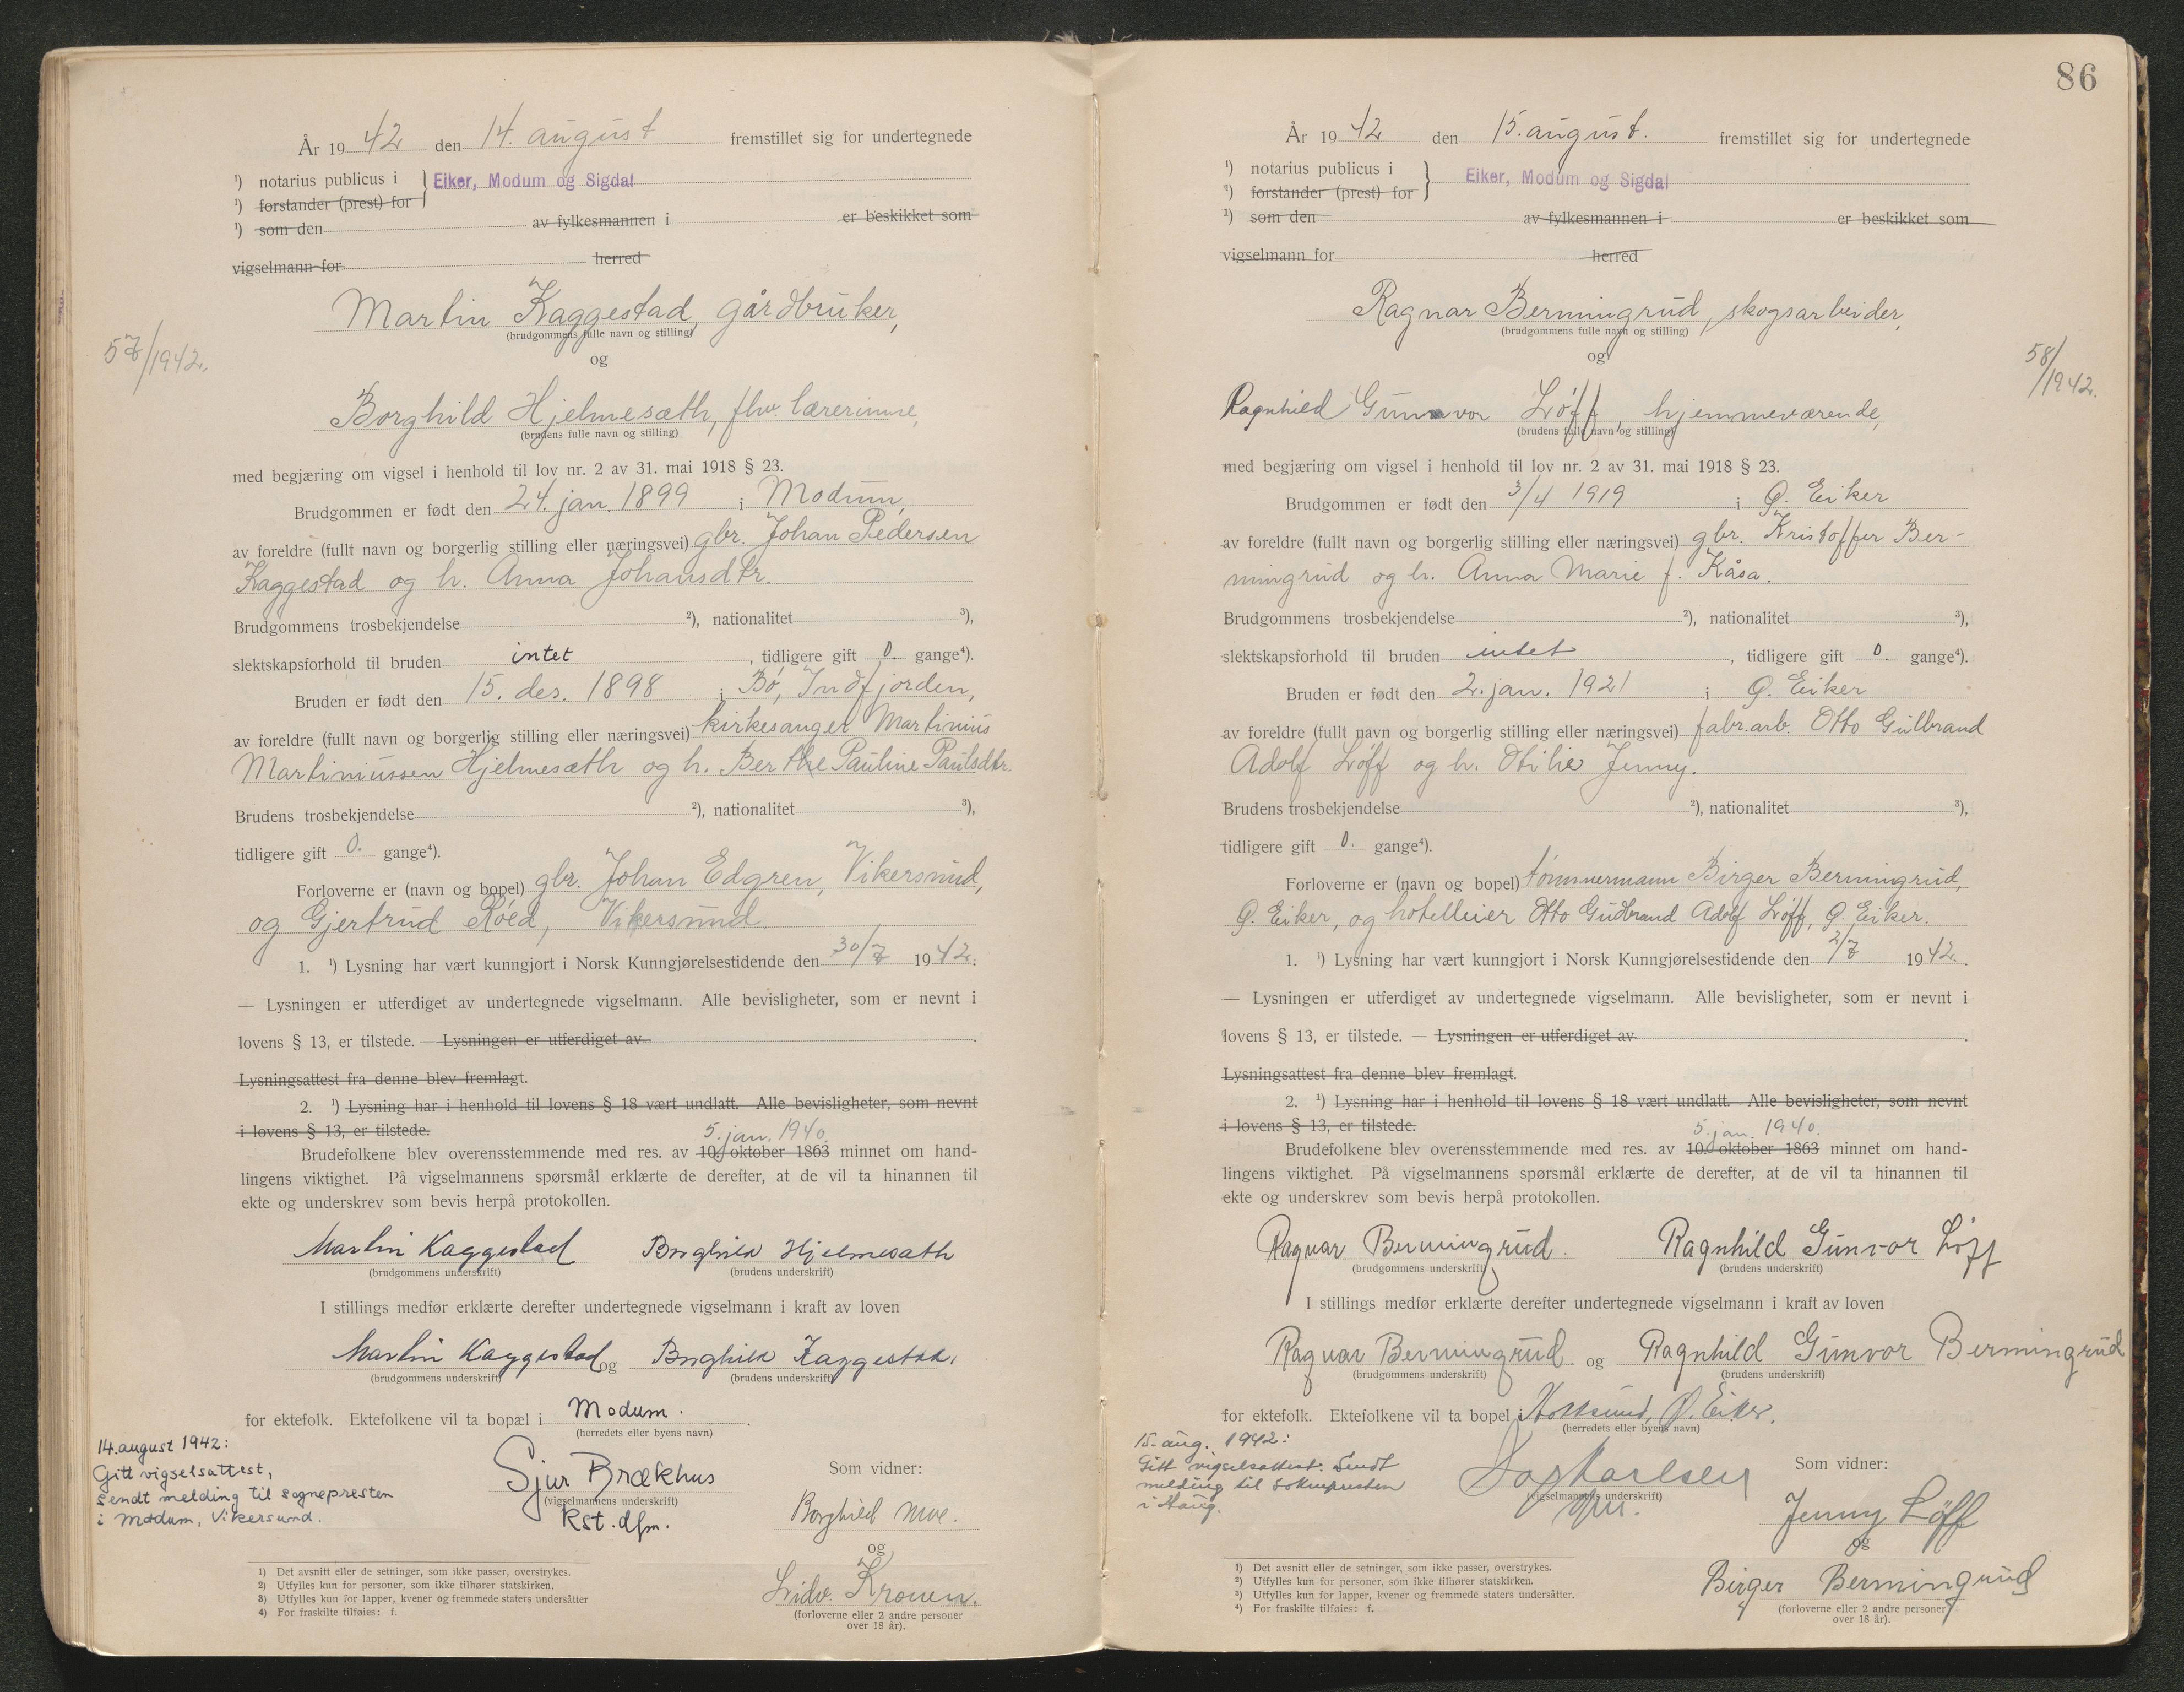 År 19 42 den 14. august fremstillet sig for undertegnede
¹) notarius publicus i } Eiker, Modum og Sigdal
¹) forstander (prest) for
¹) som den av fylkesmannen i er beskikket som
vigselmann for herred
Martin Kaggestad, gårdbruker,
(brudgommens fulle navn og stilling)
57/1942.
og
Borghild Hjelmesæth, fhv. lærerinne,
(brudens fulle navn og stilling)
med begjæring om vigsel i henhold til lov nr. 2 av 31. mai 1918 § 23.
Brudgommen er født den 24. jan. 1899 i Modum,
av foreldre (fullt navn og borgerlig stilling eller næringsvei) gbr. Johan Pedersen
Kaggestad og h. Anna Johansdtr.
Brudgommens trosbekjendelse ²), nationalitet ³),
slektskapsforhold til bruden intet , tidligere gift 0. gange⁴).
Bruden er født den 15. des. 1898 i Bó, Indfjorden,
av foreldre (fullt navn og borgerlig stilling eller næringsvei) kirkesanger Martinius
Martiniussen Hjelmesæth og h. Berthe Pauline Paulsdtr.
Brudens trosbekjendelse ²), nationalitet ³),
tidligere gift 0. gange⁴).
Forloverne er (navn og bopel) gbr. Johan Edgren, Vikersund,
og Gjertrud Róed, Vikersund.
1. ¹) Lysning har vært kunngjort i Norsk Kunngjørelsestidende den 30/7 19 42.
— Lysningen er utferdiget av undertegnede vigselmann. Alle bevisligheter, som er nevnt i
lovens § 13, er tilstede. — Lysningen er utferdiget av .
Lysningsattest fra denne blev fremlagt.
2. ¹) Lysning har i henhold til lovens § 18 vært undlatt. Alle bevisligheter, som nevnt
i lovens § 13, er tilstede.
5. jan. 1940.
Brudefolkene blev overensstemmende med res. av 10. oktober 1863 minnet om hand-
lingens viktighet. På vigselmannens spørsmål erklærte de derefter, at de vil ta hinannen til
ekte og underskrev som bevis herpå protokollen.
Martin Kaggestad Borghild Hjelmesæth
(brudgommens underskrift) (brudens underskrift)
I stillings medfør erklærte derefter undertegnede vigselmann i kraft av loven
Martin Kaggestad og Borghild Kaggestad.
(brudgommens underskrift) (brudens underskrift)
for ektefolk. Ektefolkene vil ta bopæl i Modum. .
(herredets eller byens navn)
14. august 1942:
Gitt vigselsattest,
sendt melding til sognepresten
i Modum, Vikersund.
Sjur Brækhus
(vigselmannens underskrift)
Kst. dfm.
Som vidner:
Borghild Moe.
og
Lidv. Kronen.
(forloverne eller 2 andre personer
over 18 år).
1) Det avsnitt eller de setninger, som ikke passer, overstrykes.
2) Utfylles kun for personer, som ikke tilhører statskirken.
3) Utfylles kun for lapper, kvener og fremmede staters undersåtter
4) For fraskilte tilføies: f.
86
År 19 42 den 15. august. fremstillet sig for undertegnede
¹) notarius publicus i } Eiker, Modum og Sigdal
¹) forstander (prest) for
¹) som den av fylkesmannen i er beskikket som
vigselmann for herred
Ragnar Bermingrud, skogsarbeider,
(brudgommens fulle navn og stilling)
og
58/1942.
Ragnhild Gunnvor Lóff, hjemmeværende,
(brudens fulle navn og stilling)
med begjæring om vigsel i henhold til lov nr. 2 av 31. mai 1918 § 23.
Brudgommen er født den 3/4 1919 i Ø. Eiker
av foreldre (fullt navn og borgerlig stilling eller næringsvei) gbr. Kristoffer Ber-
mingrud og h. Anna Marie f. Kåsa.
Brudgommens trosbekjendelse ²), nationalitet ³),
slektskapsforhold til bruden intet , tidligere gift 0. gange⁴).
Bruden er født den 2. jan. 1921 i Ø. Eiker
av foreldre (fullt navn og borgerlig stilling eller næringsvei) fabr.arb. Otto Gulbrand
Adolf Lóff og h. Otilie Jenny.
Brudens trosbekjendelse ²), nationalitet ³),
tidligere gift 0. gange⁴).
Forloverne er (navn og bopel) tómmermann Birger Bermingrud,
Ø. Eiker, og hotelleier Otto Gudbrand Adolf Lóff, Ø. Eiker.
1. ¹) Lysning har vært kunngjort i Norsk Kunngjørelsestidende den 2/7 19 42. .
— Lysningen er utferdiget av undertegnede vigselmann. Alle bevisligheter, som er nevnt i
lovens § 13, er tilstede. — Lysningen er utferdiget av .
Lysningsattest fra denne blev fremlagt.
2. ¹) Lysning har i henhold til lovens § 18 vært undlatt. Alle bevisligheter, som nevnt
i lovens § 13, er tilstede.
5. jan. 1940.
Brudefolkene blev overensstemmende med res. av 10. oktober 1863 minnet om hand-
lingens viktighet. På vigselmannens spørsmål erklærte de derefter, at de vil ta hinannen til
ekte og underskrev som bevis herpå protokollen.
Ragnar Bermingrud. Ragnhild Gunvor Löff
(brudgommens underskrift) (brudens underskrift)
I stillings medfør erklærte derefter undertegnede vigselmann i kraft av loven
Ragnar Bermingrud og Ragnhild Gunvor Bermingrud
(brudgommens underskrift) (brudens underskrift)
for ektefolk. Ektefolkene vil ta bopel i Hokksund, Ø. Eiker.
(herredets eller byens navn)
15. aug. 1942:
Gitt vigselsattest. Sendt
melding til soknepresten
i Haug.
Dag Karlsen
(vigselmannens underskrift)
Som vidner:
Jenny Löff
og
Birger Bermingrud
(forloverne eller 2 andre personer
over 18 år).
1) Det avsnitt eller de setninger, som ikke passer, overstrykes.
2) Utfylles kun for personer, som ikke tilhører statskirken.
3) Utfylles kun for lapper, kvener og fremmede staters undersåtter.
4) For fraskilte tilføies: f.